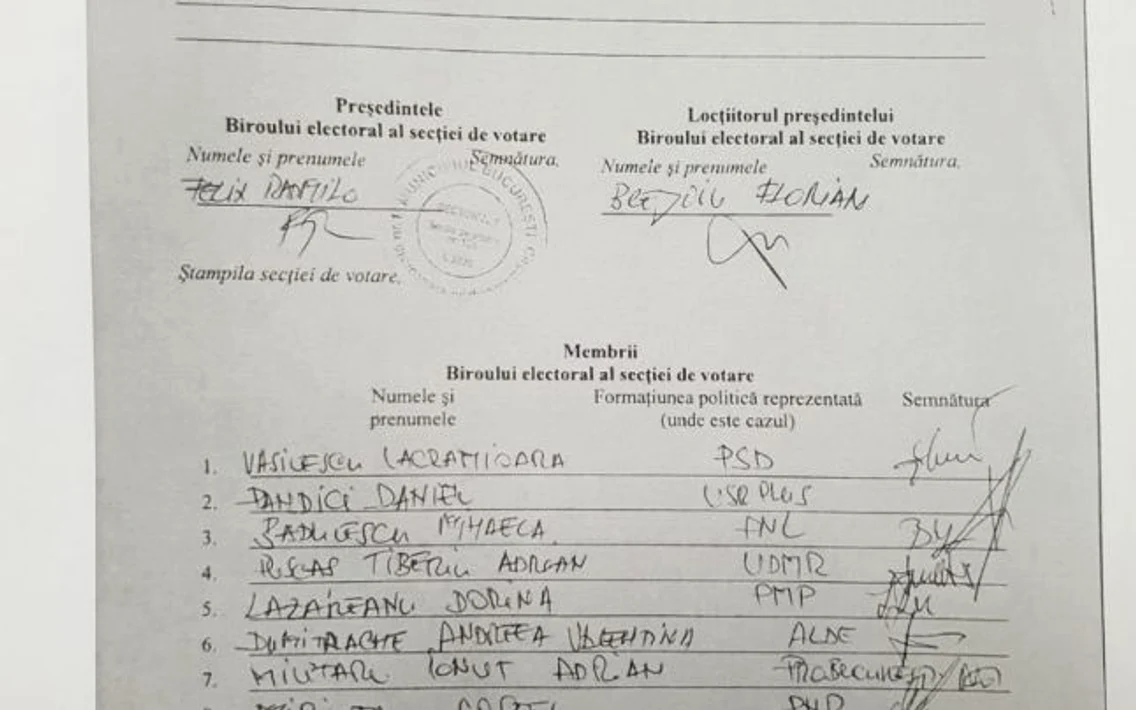 Președintele
Biroului electoral al secției de votare
Numele și prenumele Semnătura,
FELIX
Ștampila secției de votare,
Locțiitorul președintelui
Biroului electoral al secției de votare
Numele și prenumele Semnătura,
FLORIAN
MUNICIPIUL BUCUREȘTI
Membrii
Biroului electoral al secției de votare
Numele și Formațiunea politică reprezentată Semnătura
prenumele (unde este cazul)
1. VASILESCU LACRAMIOARA PSD
2. PANDICI DANIEL USR PLUS
3. BADULESCU MIHAELA PNL
4. TIBERIU ADRIAN UDMR
5. LAZAREANU DORINA PMP
6. DUMITRACHE ANDREEA VALENTINA ALDE
7. MILITARU IONUT ADRIAN